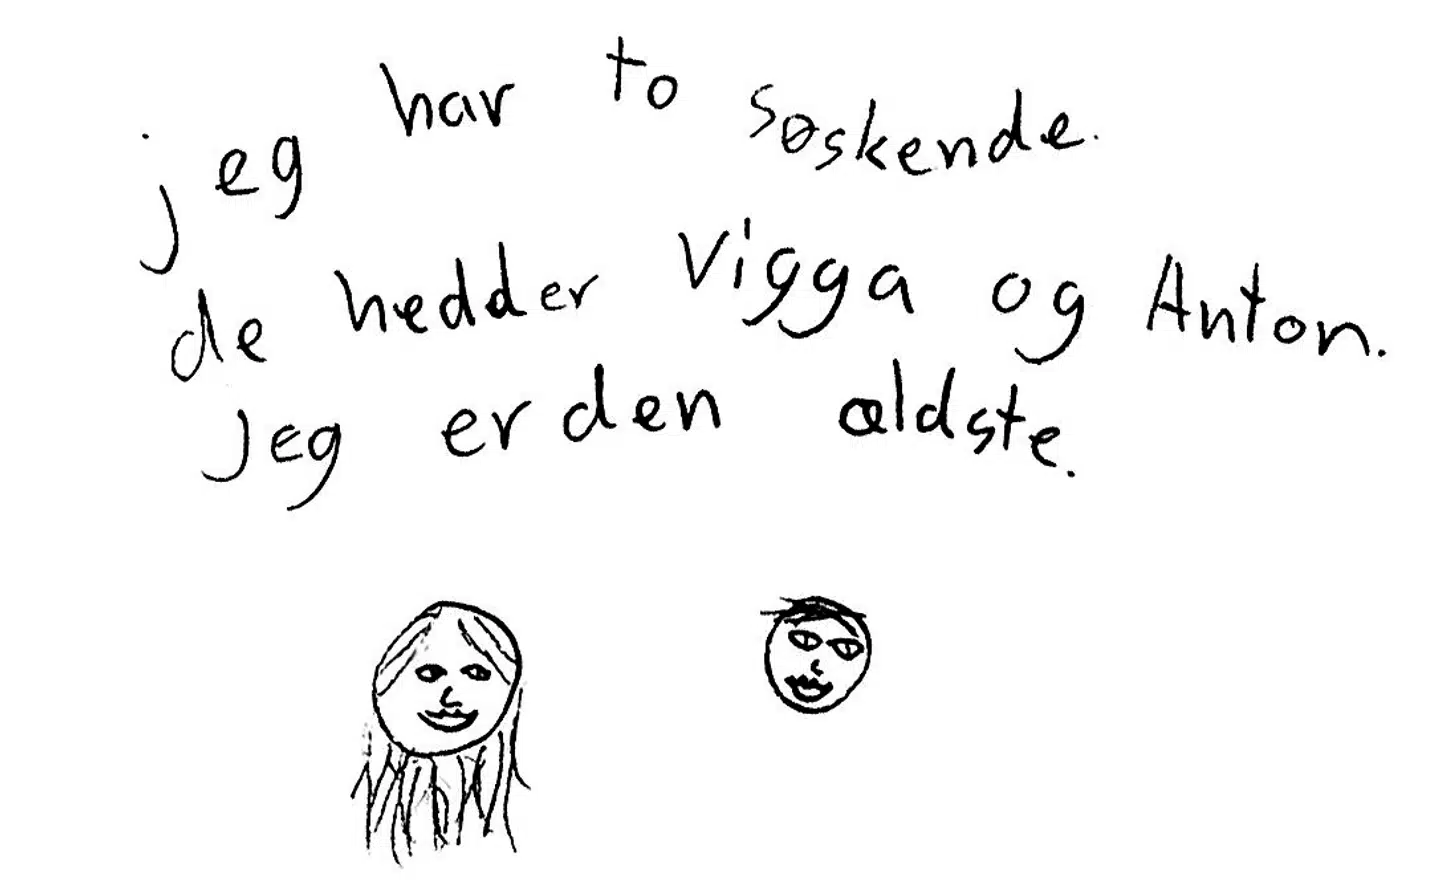 jeg har to søskende.
de hedder Vigga og Anton.
Jeg er den ældste.